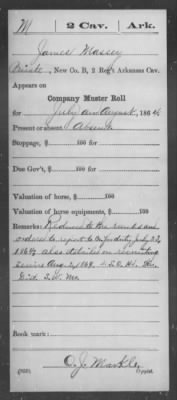 M | 2 Cav. | Ark.
James Massey
Private, New Co. B, 2 Reg't Arkansas Cav.
Appears on
Company Muster Roll
for July and August, 1864
Present or absent Absent
Stoppage, $ 100 for
Due Gov't, $ 100 for
Valuation of horse, $ 100
Valuation of horse equipments, $ 100
Remarks: Reduced to the ranks and
ordered to report to Co. for duty July
1864 also detailed on recruiting
service Aug. 2/64.
Dist. S.W. Mo.
Book mark:
(858) C. J. Markle
Copyist.